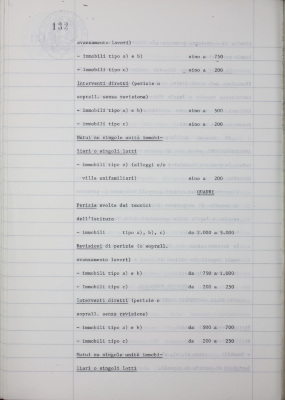 133
avanzamento lavori)
- immobili tipo a) e b) sino a 750
- immobili tipo c) sino a 200
Interventi diretti (perizie o
soprall. senza revisione)
- immobili tipo a) e b) sino a 500
- immobili tipo c) sino a 200
Mutui su singole unità immobi-
liari o singoli lotti
- immobili tipo c) (alloggi e/o
ville unifamiliari) sino a 200
QUADRI
Perizie svolte dai tecnici
dell'Istituto
- immobili tipo a), b), c) da 2.000 a
Revisioni di perizie (o soprall.
avanzamento lavori)
- immobili tipo a) e b) da 750 a 1.000
- immobili tipo c) da 200 a 250
Interventi diretti (perizie o
soprall. senza revisione)
- immobili tipo a) e b) da 500 a 700
- immobili tipo c) da 200 a 250
Mutui su singole unità immobi-
liari o singoli lotti